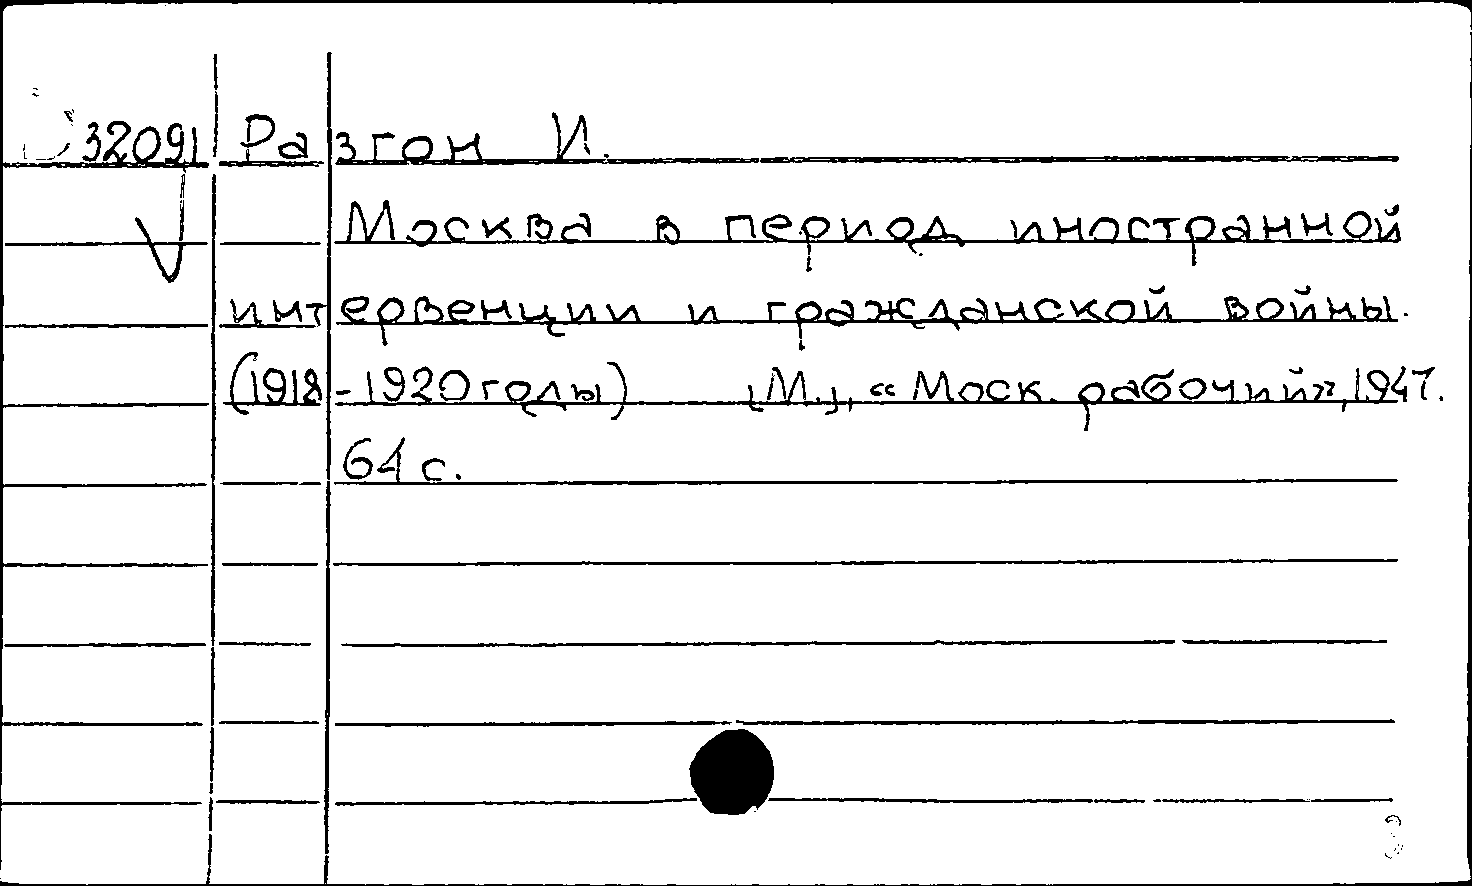 32091 Разгон И.
Москва в период иностранной
интервенции и гражданской войны.
(1918-1920 годы) [М.], «Моск. рабочий», 1947.
64 с.